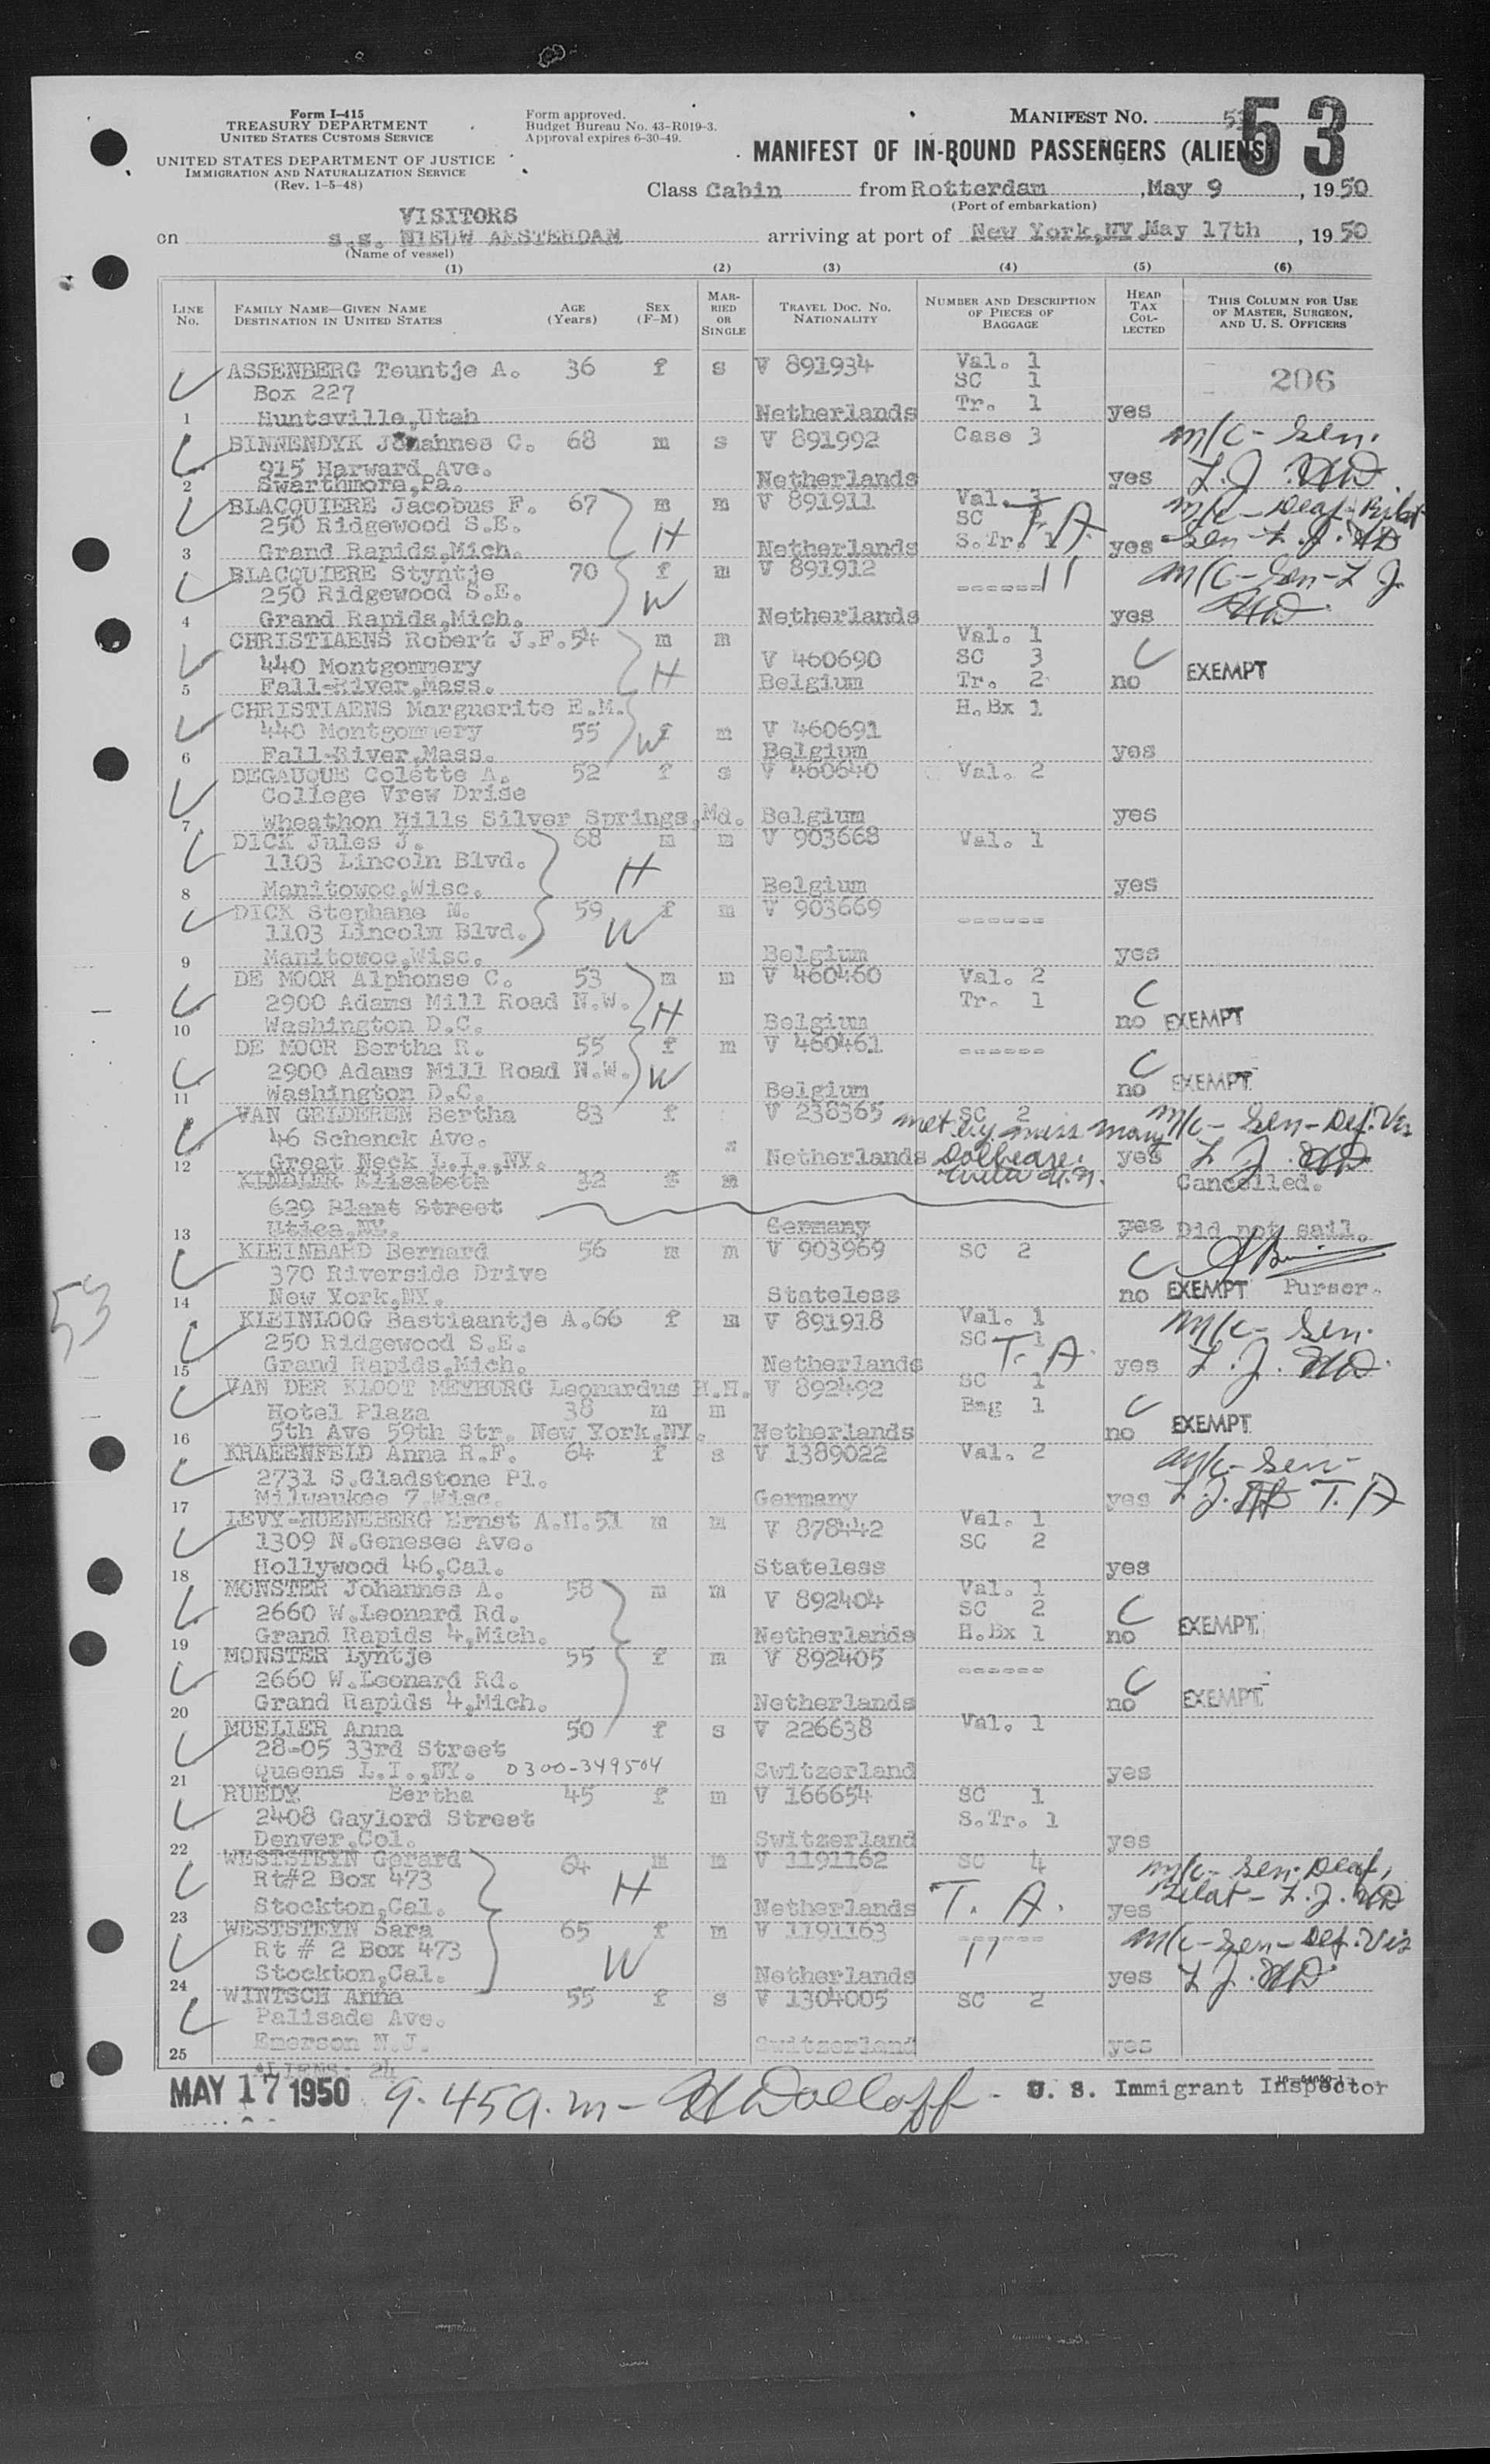 Form I-415
TREASURY DEPARTMENT
UNITED STATES CUSTOMS SERVICE
UNITED STATES DEPARTMENT OF JUSTICE
IMMIGRATION AND NATURALIZATION SERVICE
(Rev. 1-5-48)
Form approved.
Budget Bureau No. 43-R019-3.
Approval expires 6-30-49.
MANIFEST NO. 53
MANIFEST OF IN-BOUND PASSENGERS (ALIENS)
Class Cabin from Rotterdam, May 9, 1950
(Port of embarkation)
VISITORS
on s.s. NIEUW AMSTERDAM arriving at port of New York, NY May 17th, 1950
(Name of vessel)
(1) (2) (3) (4) (5) (6)
LINE No. FAMILY NAME—GIVEN NAME DESTINATION IN UNITED STATES AGE (Years) SEX (F-M) MARRIED OR SINGLE TRAVEL DOC. NO. NATIONALITY NUMBER AND DESCRIPTION OF PIECES OF BAGGAGE HEAD TAX COLLECTED THIS COLUMN FOR USE OF MASTER, SURGEON, AND U. S. OFFICERS
ASSENBERG Teuntje A. 36 f s V 891934 Val. 1
Box 227 SC 1 206
1 Huntsville,Utah Netherlands Tr. 1 yes
BINNENDYK Johannes C. 68 m s V 891992 Case 3 M/C - Sen.
915 Harward Ave.
2 Swarthmore,Pa. Netherlands yes L.J. HD
BLACQUIERE Jacobus F. 67 m m V 891911 Val. 3 M/C - Deaf - Bilat
250 Ridgewood S.E. H SC T.A.
3 Grand Rapids,Mich. Netherlands S.Tr. 1 yes Sen - L.J. HD
BLACQUIERE Styntje 70 f m V 891912 ------ 11 M/C - Sen - L J.
250 Ridgewood S.E. W
4 Grand Rapids,Mich. Netherlands yes HD
CHRISTIAENS Robert J.F. 54 m m Val. 1
440 Montgommery H V 460690 SC 3 C EXEMPT
5 Fall-River,Mass. Belgium Tr. 2 no
CHRISTIAENS Marguerite E.M. H.Bx 1
440 Montgommery 55 W f m V 460691
6 Fall-River,Mass. Belgium yes
DEGAUQUE Colette A. 52 f s V 460640 Val. 2
College Vrew Drise
7 Wheathon Hills Silver Springs,Md. Belgium yes
DICK Jules J. 68 m m V 903668 Val. 1
1103 Lincoln Blvd. H
8 Manitowoc,Wisc. Belgium yes
DICK Stephane M. 59 f m V 903669 ------
1103 Lincoln Blvd. W
9 Manitowoc,Wisc. Belgium yes
DE MOOR Alphonse C. 53 m m V 460460 Val. 2
2900 Adams Mill Road N.W. H Tr. 1 C
10 Washington D.C. Belgium no EXEMPT
DE MOOR Bertha R. 55 f m V 460461 ------
2900 Adams Mill Road N.W. W C
11 Washington D.C. Belgium no EXEMPT
VAN GELDEREN Bertha 83 f V 238365 SC 2 M/C - Sen - Def. Vis
46 Schenck Ave. s met by miss Mary
12 Great Neck L.I.,NY. Netherlands Dolbeare. yes L J. HD
KINDLER Elisabeth 32 f m Cancelled.
629 Plant Street
13 Utica,NY. Germany yes Did not sail.
KLEINBARD Bernard 56 m m V 903969 SC 2 C
370 Riverside Drive
14 New York,NY. Stateless no EXEMPT Purser.
KLEINLOOG Bastiaantje A. 66 f m V 891918 Val. 1 M/C - Sen.
250 Ridgewood S.E. SC 1 T.A.
15 Grand Rapids,Mich. Netherlands yes L.J. HD.
VAN DER KLOOT MEYBURG Leonardus H.H. V 892492 SC 1
Hotel Plaza 38 m m Bag 1 C
16 5th Ave 59th Str. New York,NY. Netherlands no EXEMPT
KRAEENFELD Anna R.F. 64 f s V 1389022 Val. 2 M/C - Sen -
2731 S.Gladstone Pl.
17 Milwaukee 7,Wisc. Germany yes L.J. HD T.A
LEVY-HUENEBERG Ernst A.H. 51 m m V 878442 Val. 1
1309 N.Genesee Ave. SC 2
18 Hollywood 46,Cal. Stateless yes
MONSTER Johannes A. 58 m m V 892404 Val. 1
2660 W.Leonard Rd. SC 2 C
19 Grand Rapids 4,Mich. Netherlands H.Bx 1 no EXEMPT.
MONSTER Lyntje 55 f m V 892405 ------
2660 W.Leonard Rd. C
20 Grand Rapids 4,Mich. Netherlands no EXEMPT
MUELLER Anna 50 f s V 226638 Val. 1
28-05 33rd Street
21 Queens L.I.,NY. 0300-349504 Switzerland yes
RUEDY Bertha 45 f m V 166654 SC 1
2408 Gaylord Street S.Tr. 1
22 Denver,Col. Switzerland yes
WESTSTEYN Gerard 64 m m V 1191162 SC 4 M/C - Sen. Deaf,
Rt#2 Box 473 H
23 Stockton,Cal. Netherlands T. A. yes Bilat - L.J. HD
WESTSTEYN Sara 65 f m V 1191163 ------ M/C - Sen - Def. Vis
Rt # 2 Box 473 W 11
24 Stockton,Cal. Netherlands yes L J. HD.
WINTSCH Anna 55 f s V 1304005 SC 2
Palisade Ave.
25 Emerson N.J. Switzerland yes
ALIENS: 24
53
MAY 17 1950 9.45 a.m - HDolloff - U. S. Immigrant Inspector